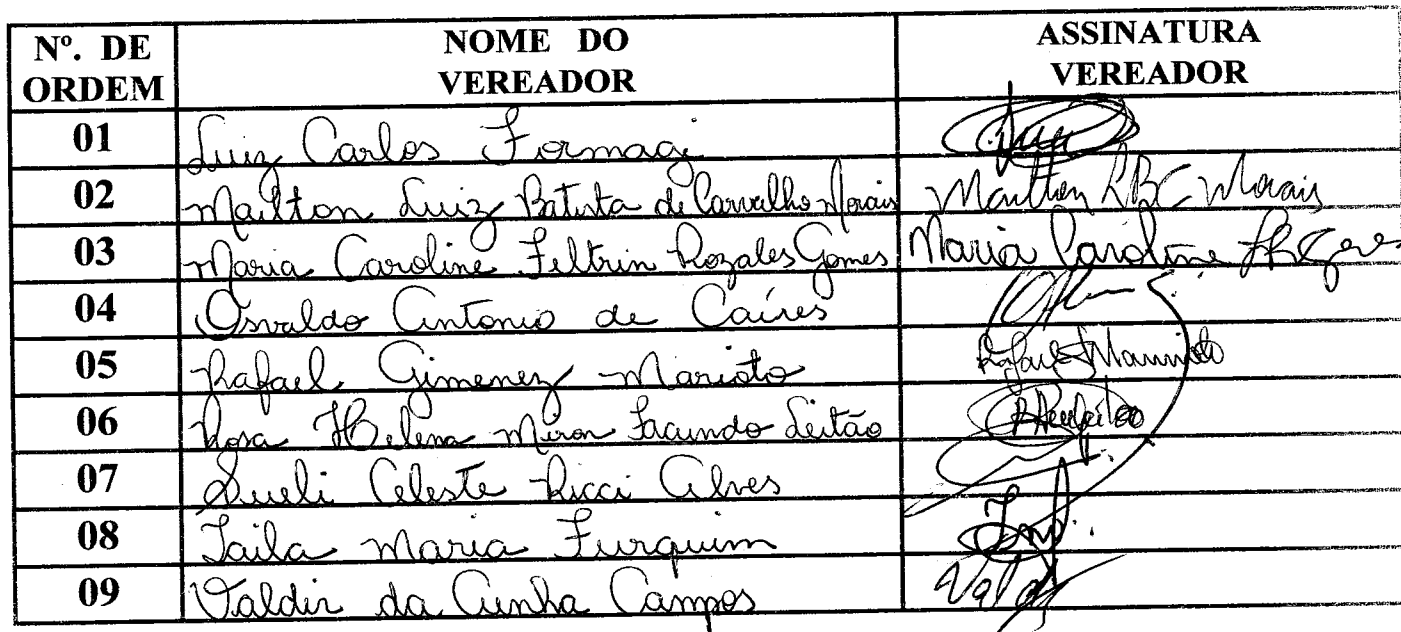 Nº. DE ORDEM NOME DO VEREADOR ASSINATURA VEREADOR
01 Luiz Carlos Formagi
02 Mailton Luiz Batista de Carvalho Morais Mailton LBC Morais
03 Maria Caroline Feltrin Rozales Gomes Maria Caroline
04 Osvaldo Antonio de Caíres
05 Rafael Gimenez Marioto
06 Rosa Helena Miron Facundo Leitão
07 Sueli Celeste Ricci Alves
08 Taila Maria Furquim
09 Valdir da Cunha Campos